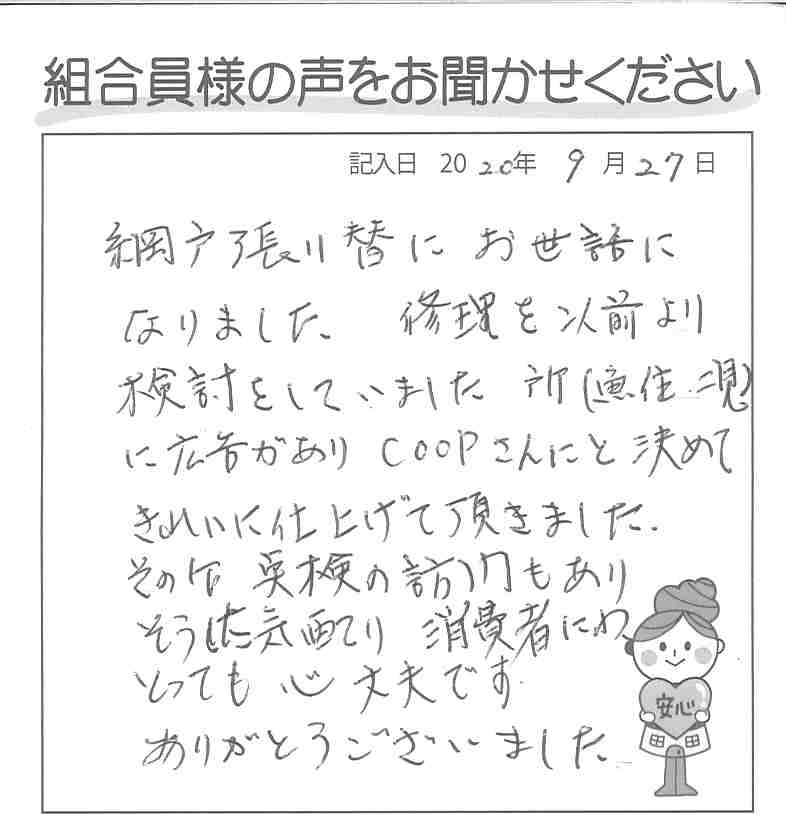 組合員様の声をお聞かせください
記入日 2020年 9月27日
網戸張り替に お世話に
なりました。 修理を以前より
検討をしていました 所
に広告があり COOPさんにと決めて
きれいに仕上げて頂きました.
その后 点検の訪問もあり
そうした気配り 消費者にわ、
とっても 心丈夫です
ありがとうございました
安心